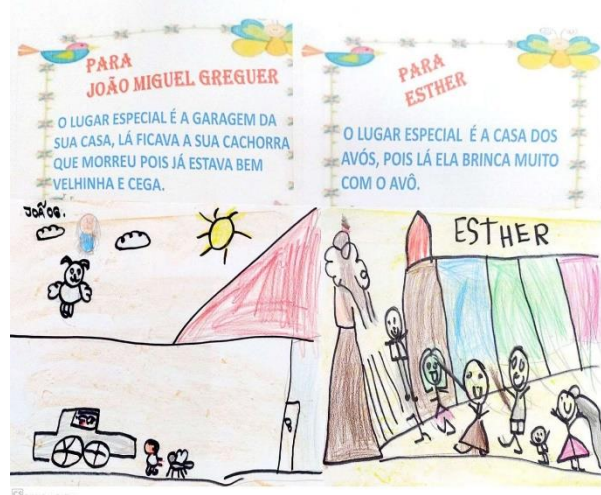 PARA
JOÃO MIGUEL GREGUER
O LUGAR ESPECIAL É A GARAGEM DA
SUA CASA, LÁ FICAVA A SUA CACHORRA
QUE MORREU POIS JÁ ESTAVA BEM
VELHINHA E CEGA.
PARA
ESTHER
O LUGAR ESPECIAL É A CASA DOS
AVÓS, POIS LÁ ELA BRINCA MUITO
COM O AVÔ.
ESTHER